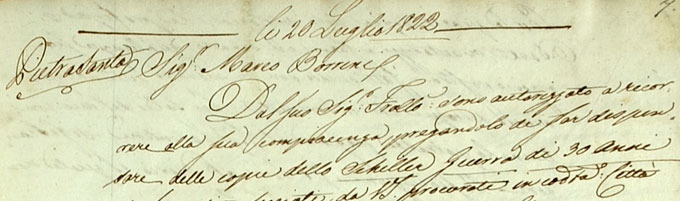 li 20 Luglio 1822
Pietrasanta Sig.r Marco Borrini
Dal suo Sig.r Fratello sono autorizzato a ricor
rere alla sua compiacenza pregandolo de far dispen
sare delle copie dello Schiller Guerra di 30 Anni
da V.S. procurati in codta. Città